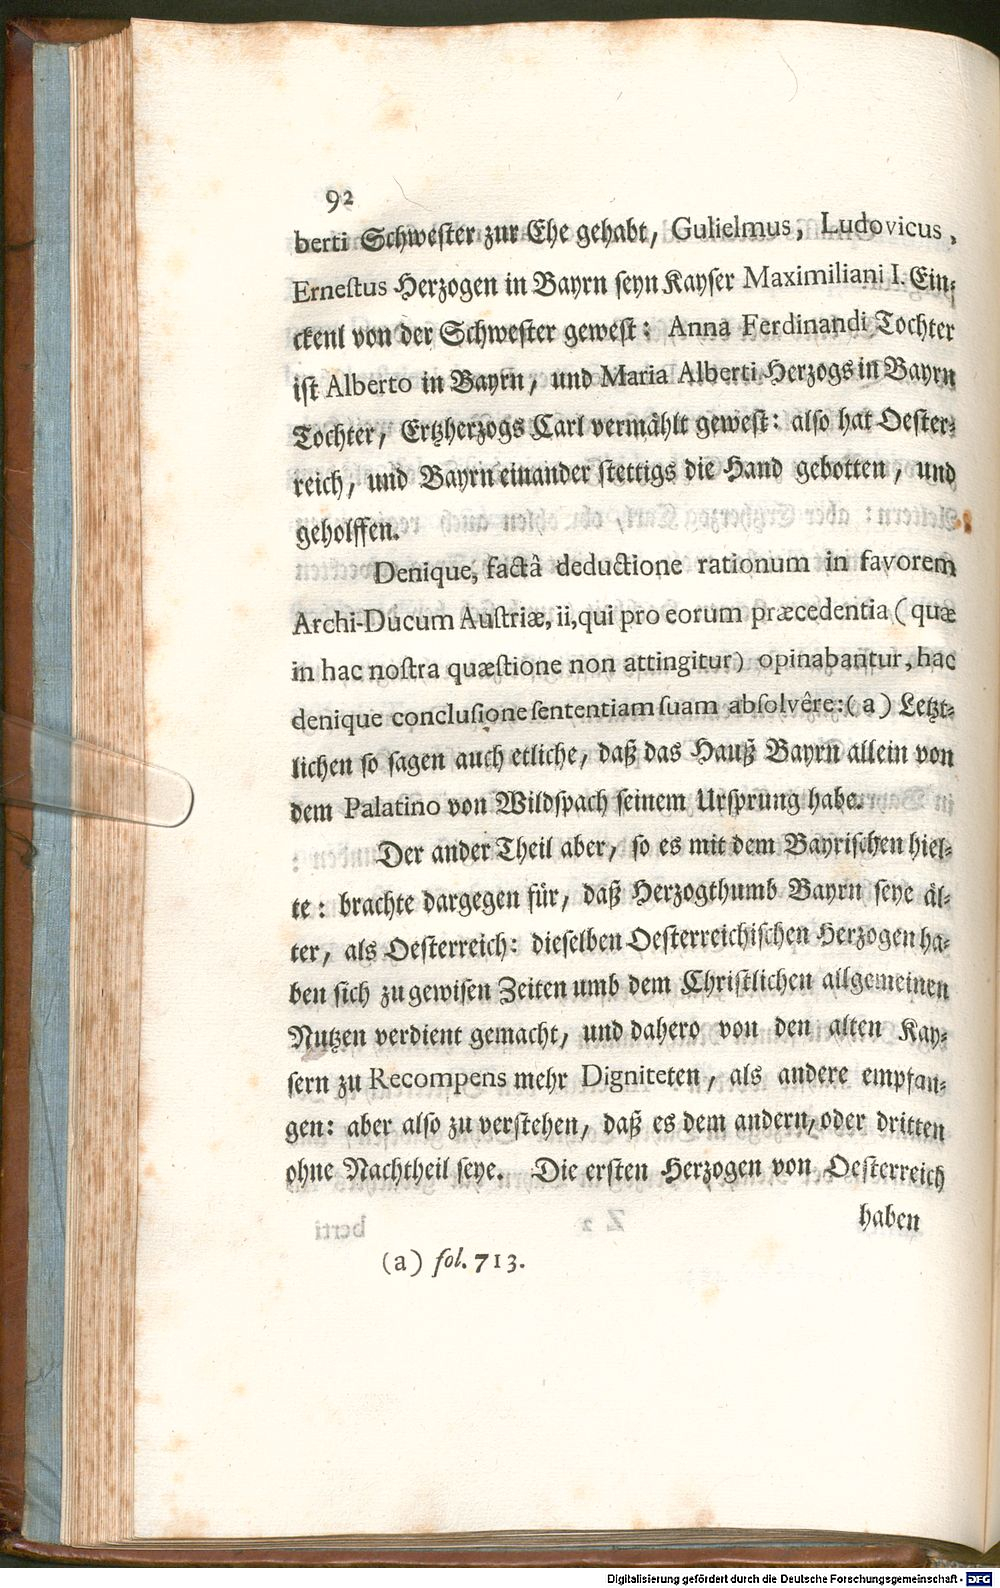 92
berti Schwester zur Ehe gehabt, Gulielmus, Ludovicus,
Ernestus Herzogen in Bayrn seyn Kayser Maximiliani I. Ein-
ckenl von der Schwester gewest: Anna Ferdinandi Tochter
ist Alberto in Bayrn, und Maria Alberti Herzogs in Bayrn
Tochter, Ertzherzogs Carl vermählt gewest: also hat Oester-
reich, und Bayrn einander stettigs die Hand gebotten, und
geholffen.
Denique, factâ deductione rationum in favorem
Archi-Ducum Austriæ, ii, qui pro eorum præcedentia (quæ
in hac nostra quæstione non attingitur) opinabantur, hac
denique conclusione sententiam suam absolvêre: (a) Letzt-
lichen so sagen auch etliche, daß das Hauß Bayrn allein von
dem Palatino von Wildspach seinem Ursprung habe.
Der ander Theil aber, so es mit dem Bayrischen hiel-
te: brachte dargegen für, daß Herzogthumb Bayrn seye äl-
ter, als Oesterreich: dieselben Oesterreichischen Herzogen ha-
ben sich zu gewisen Zeiten umb dem Christlichen allgemeinen
Nutzen verdient gemacht, und dahero von den alten Kay-
sern zu Recompens mehr Digniteten, als andere empfan-
gen: aber also zu verstehen, daß es dem andern, oder dritten
ohne Nachtheil seye. Die ersten Herzogen von Oesterreich
haben
(a) fol. 713.
Digitalisierung gefördert durch die Deutsche Forschungsgemeinschaft - DFG